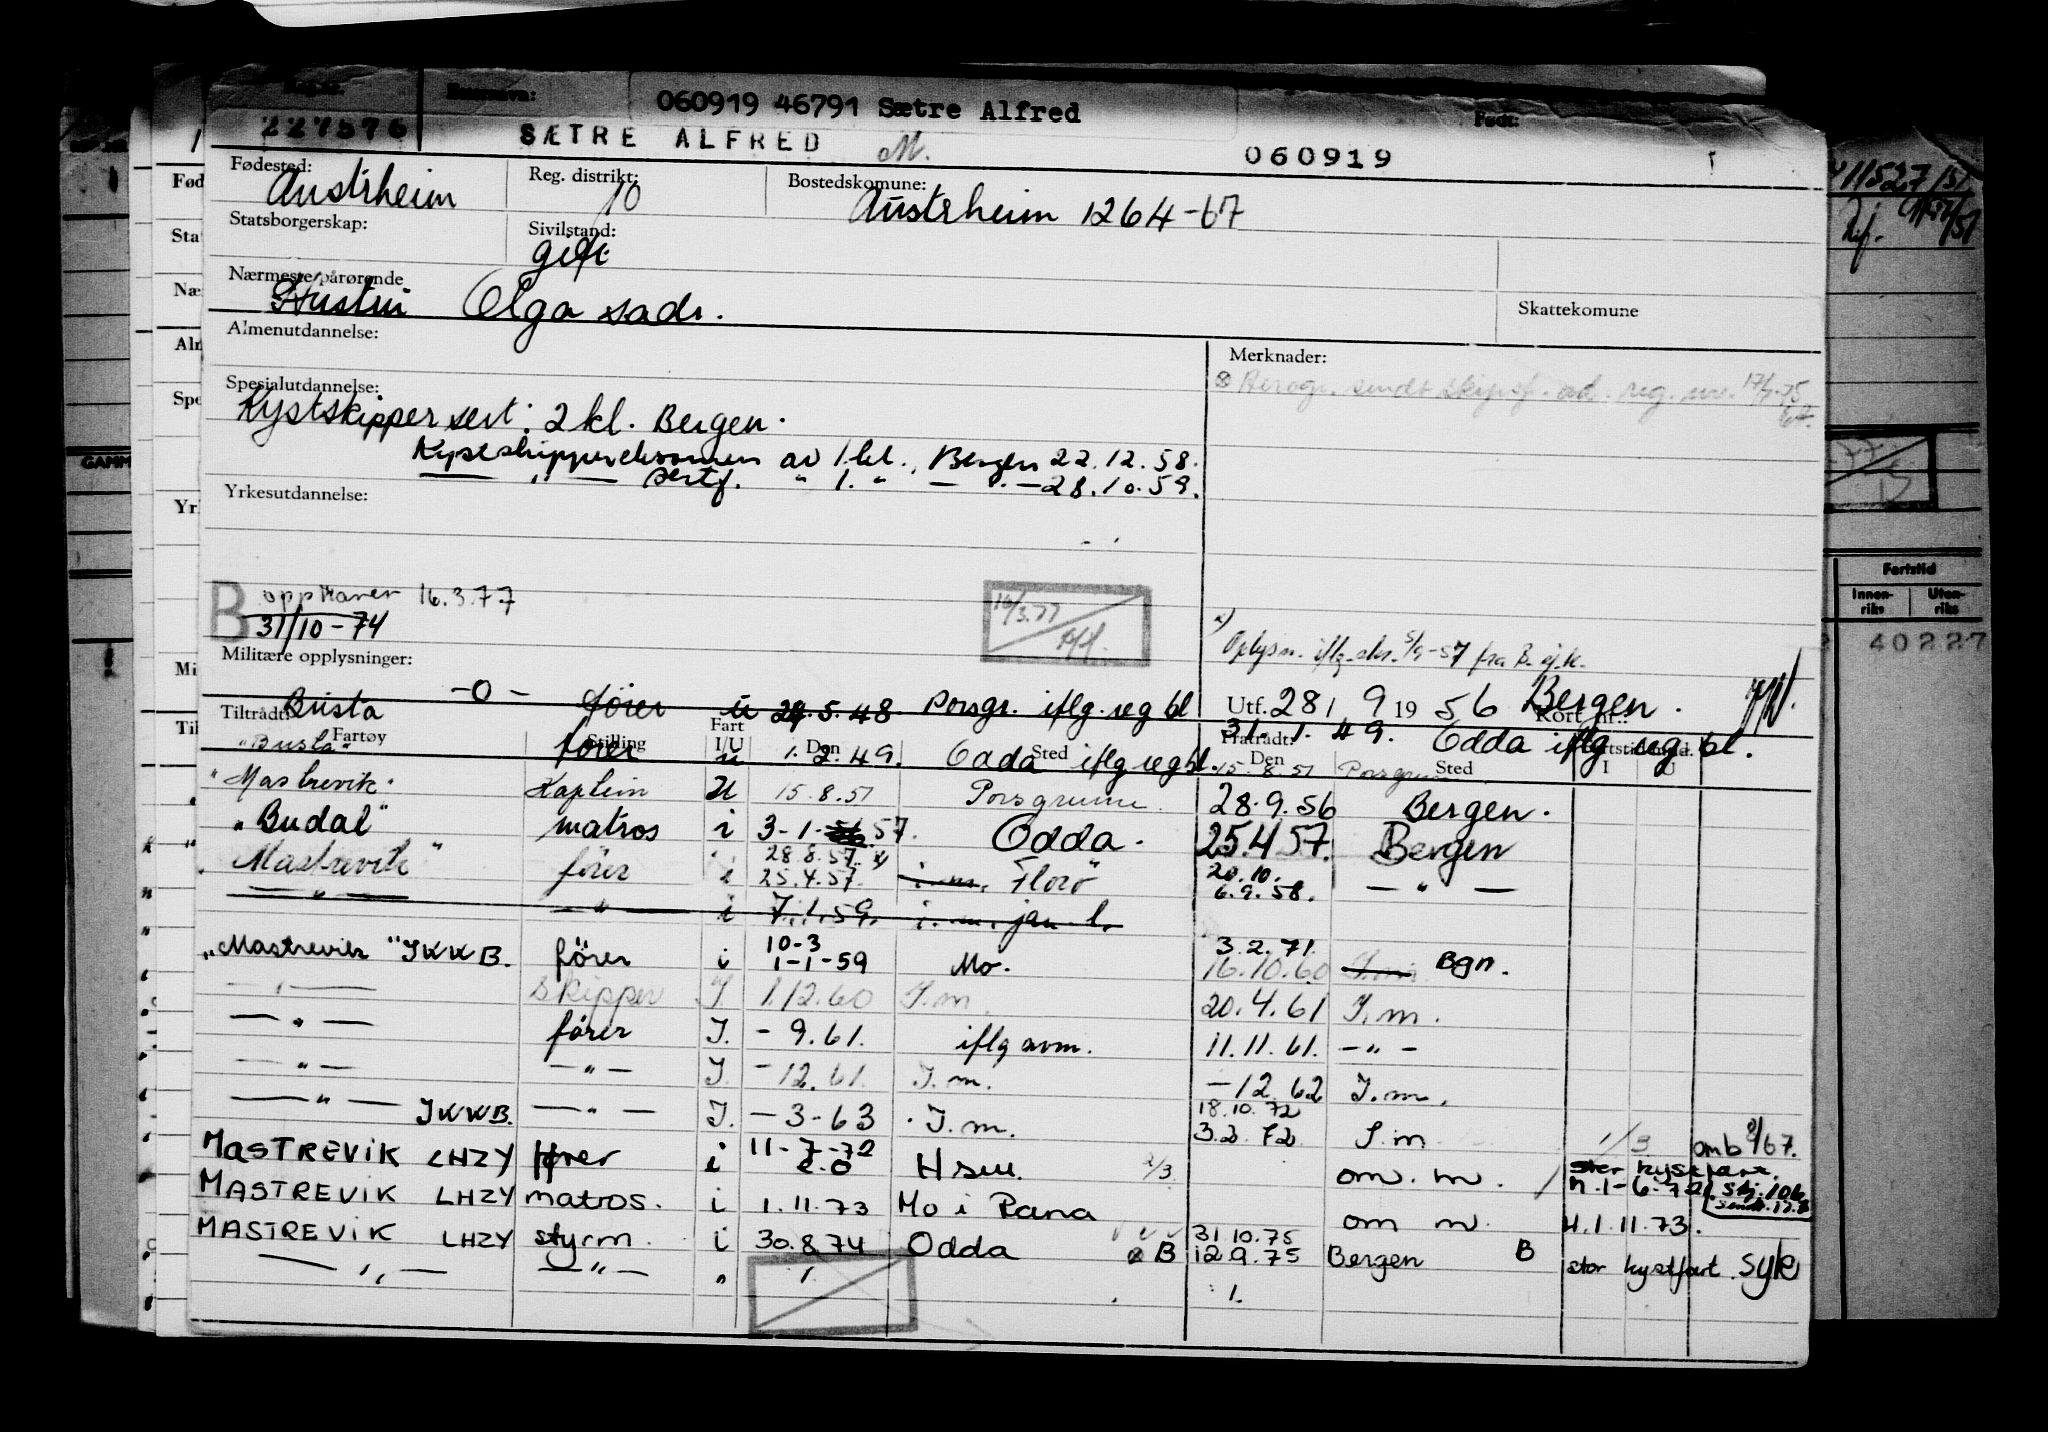 Hovednavn: 060919 46791 Sætre Alfred Født:
227576 SÆTRE ALFRED M. 060919
Fødested: Austrheim Reg. distrikt: 10 Bostedskomune: Austrheim 1264-67
Statsborgerskap: Sivilstand: gift
Nærmeste pårørende Hustru Olga sadr. Skattekomune
Almenutdannelse: Merknader:
Spesialutdannelse:
Kystskippersert: 2 kl. Bergen.
Kystskippereksamen av 1. kl., Bergen 22.12.58.
— „ — sertf. " 1. " — „ — 28.10.59.
Yrkesutdannelse:
B opphaver 16.3.77
31/10-74
16/3.77
Militære opplysninger: Oplysn. iflg. skr. 5/9-57 fra B.
-0- Utf. 28/9 19 56 Bergen.
Tiltrådt: Busta fører u 29.5.48 Porsgr. iflg. reg bl Fratrådt: 31.1.49. Odda iflg reg bl. Kort nr.:
Fartøy Stilling Fart I/U Den Sted Den Sted I U
"Busta" fører u 1.2.49. Odda iflg reg bl. 15.8.51 Porsgrunn
"Mastrevik" Kaptein U 15.8.51 Porsgrunn. 28.9.56 Bergen.
"Budal" matros i 3-1-56 57. Odda. 25.4.57. Bergen
"Mastrevik" fører i 28.8.57. x 25.4.57. i.m. Florø 20.10. 6.9.58. — " —
— " — — " — i 7.1.59. i.m. jan l.
"Mastrevik" JKKB. fører i 10-3 1-1-59 Mo. 3.2.71. 16.10.60 I.m. Bgn.
— " — Skipper I 1.12.60 I.m. 20.4.61 I.m.
— " — fører I. - 9.61. iflg avm. 11.11.61. — " —
— " — — " — I. - 12.61. I.m. - 12.62 I.m.
— " — JKKB. — " — I. - 3-63 I.m. 18.10.72 3.2.72 I.m 1/3 omb /67.
MASTREVIK LHZY fører i 11-7-72 e.o Hsm. 2/3 om. m.
MASTREVIK LHZY matros. i 1.11.73 Mo i Rana om m. H.1.11.73.
MASTREVIK LHZY styrm. i 30.8.74 Odda B 31.10.75 12.9.75 Bergen B stor kystfart. syk
— " — — " — "
11527/51
GAMM
Fartstid
Innen-riks Uten-riks
40227